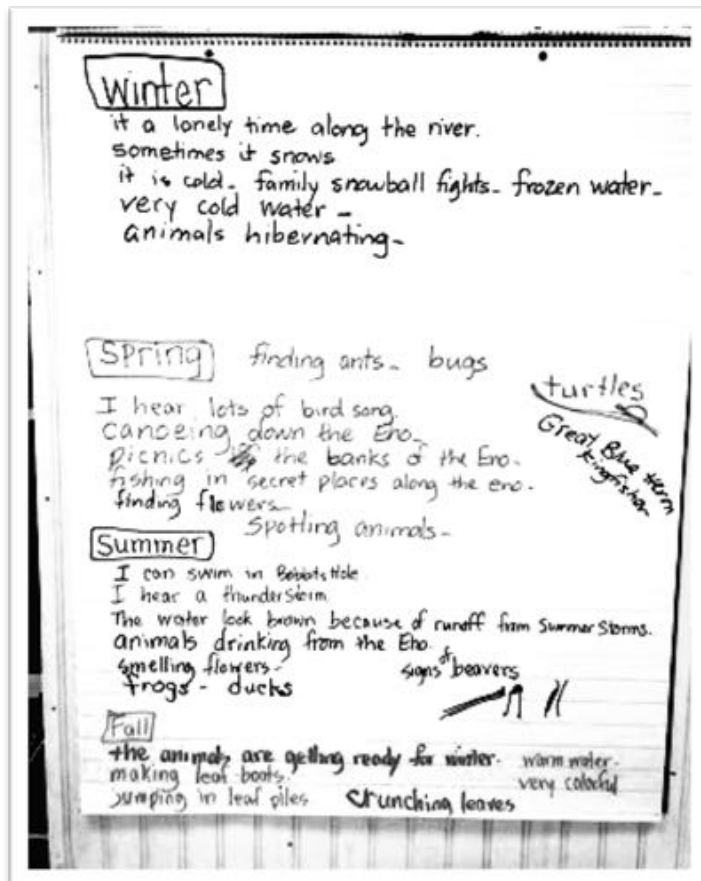 Winter
it a lonely time along the river.
sometimes it snows
it is cold- family snowball fights- frozen water-
very cold water -
animals hibernating-
Spring finding ants- bugs
turtles
Great Blue Herm
kingfisher
I hear lots of bird song.
canoeing down the Eno-
picnics the banks of the Eno-
fishing in secret places along the eno-
finding flowers-
Spotling animals-
Summer
I can swim in Hole.
I hear a thunderstorm
The water look brown because of runoff from Summer Storms.
animals drinking from the Eno.
smelling flowers-
frogs - ducks
signs of beavers
Fall
the animals are getting ready for winter.
making leaf boats.
jumping in leaf piles
warm water-
very colorful
crunching leaves